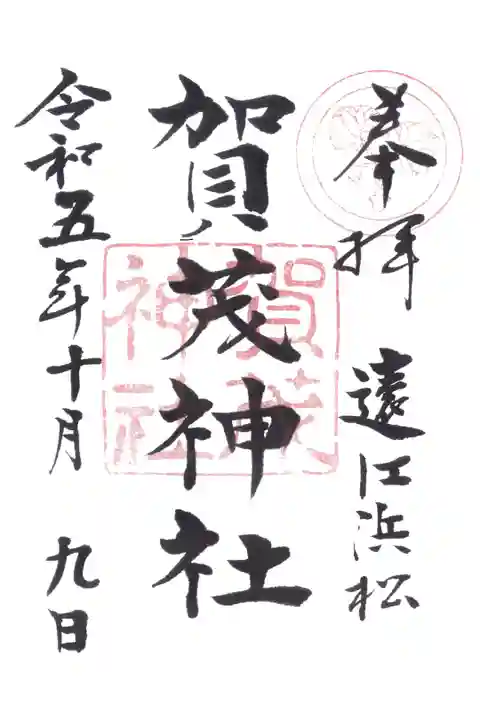 奉拝
遠江浜松
賀茂神社
賀茂
神社
令和五年十月
九日